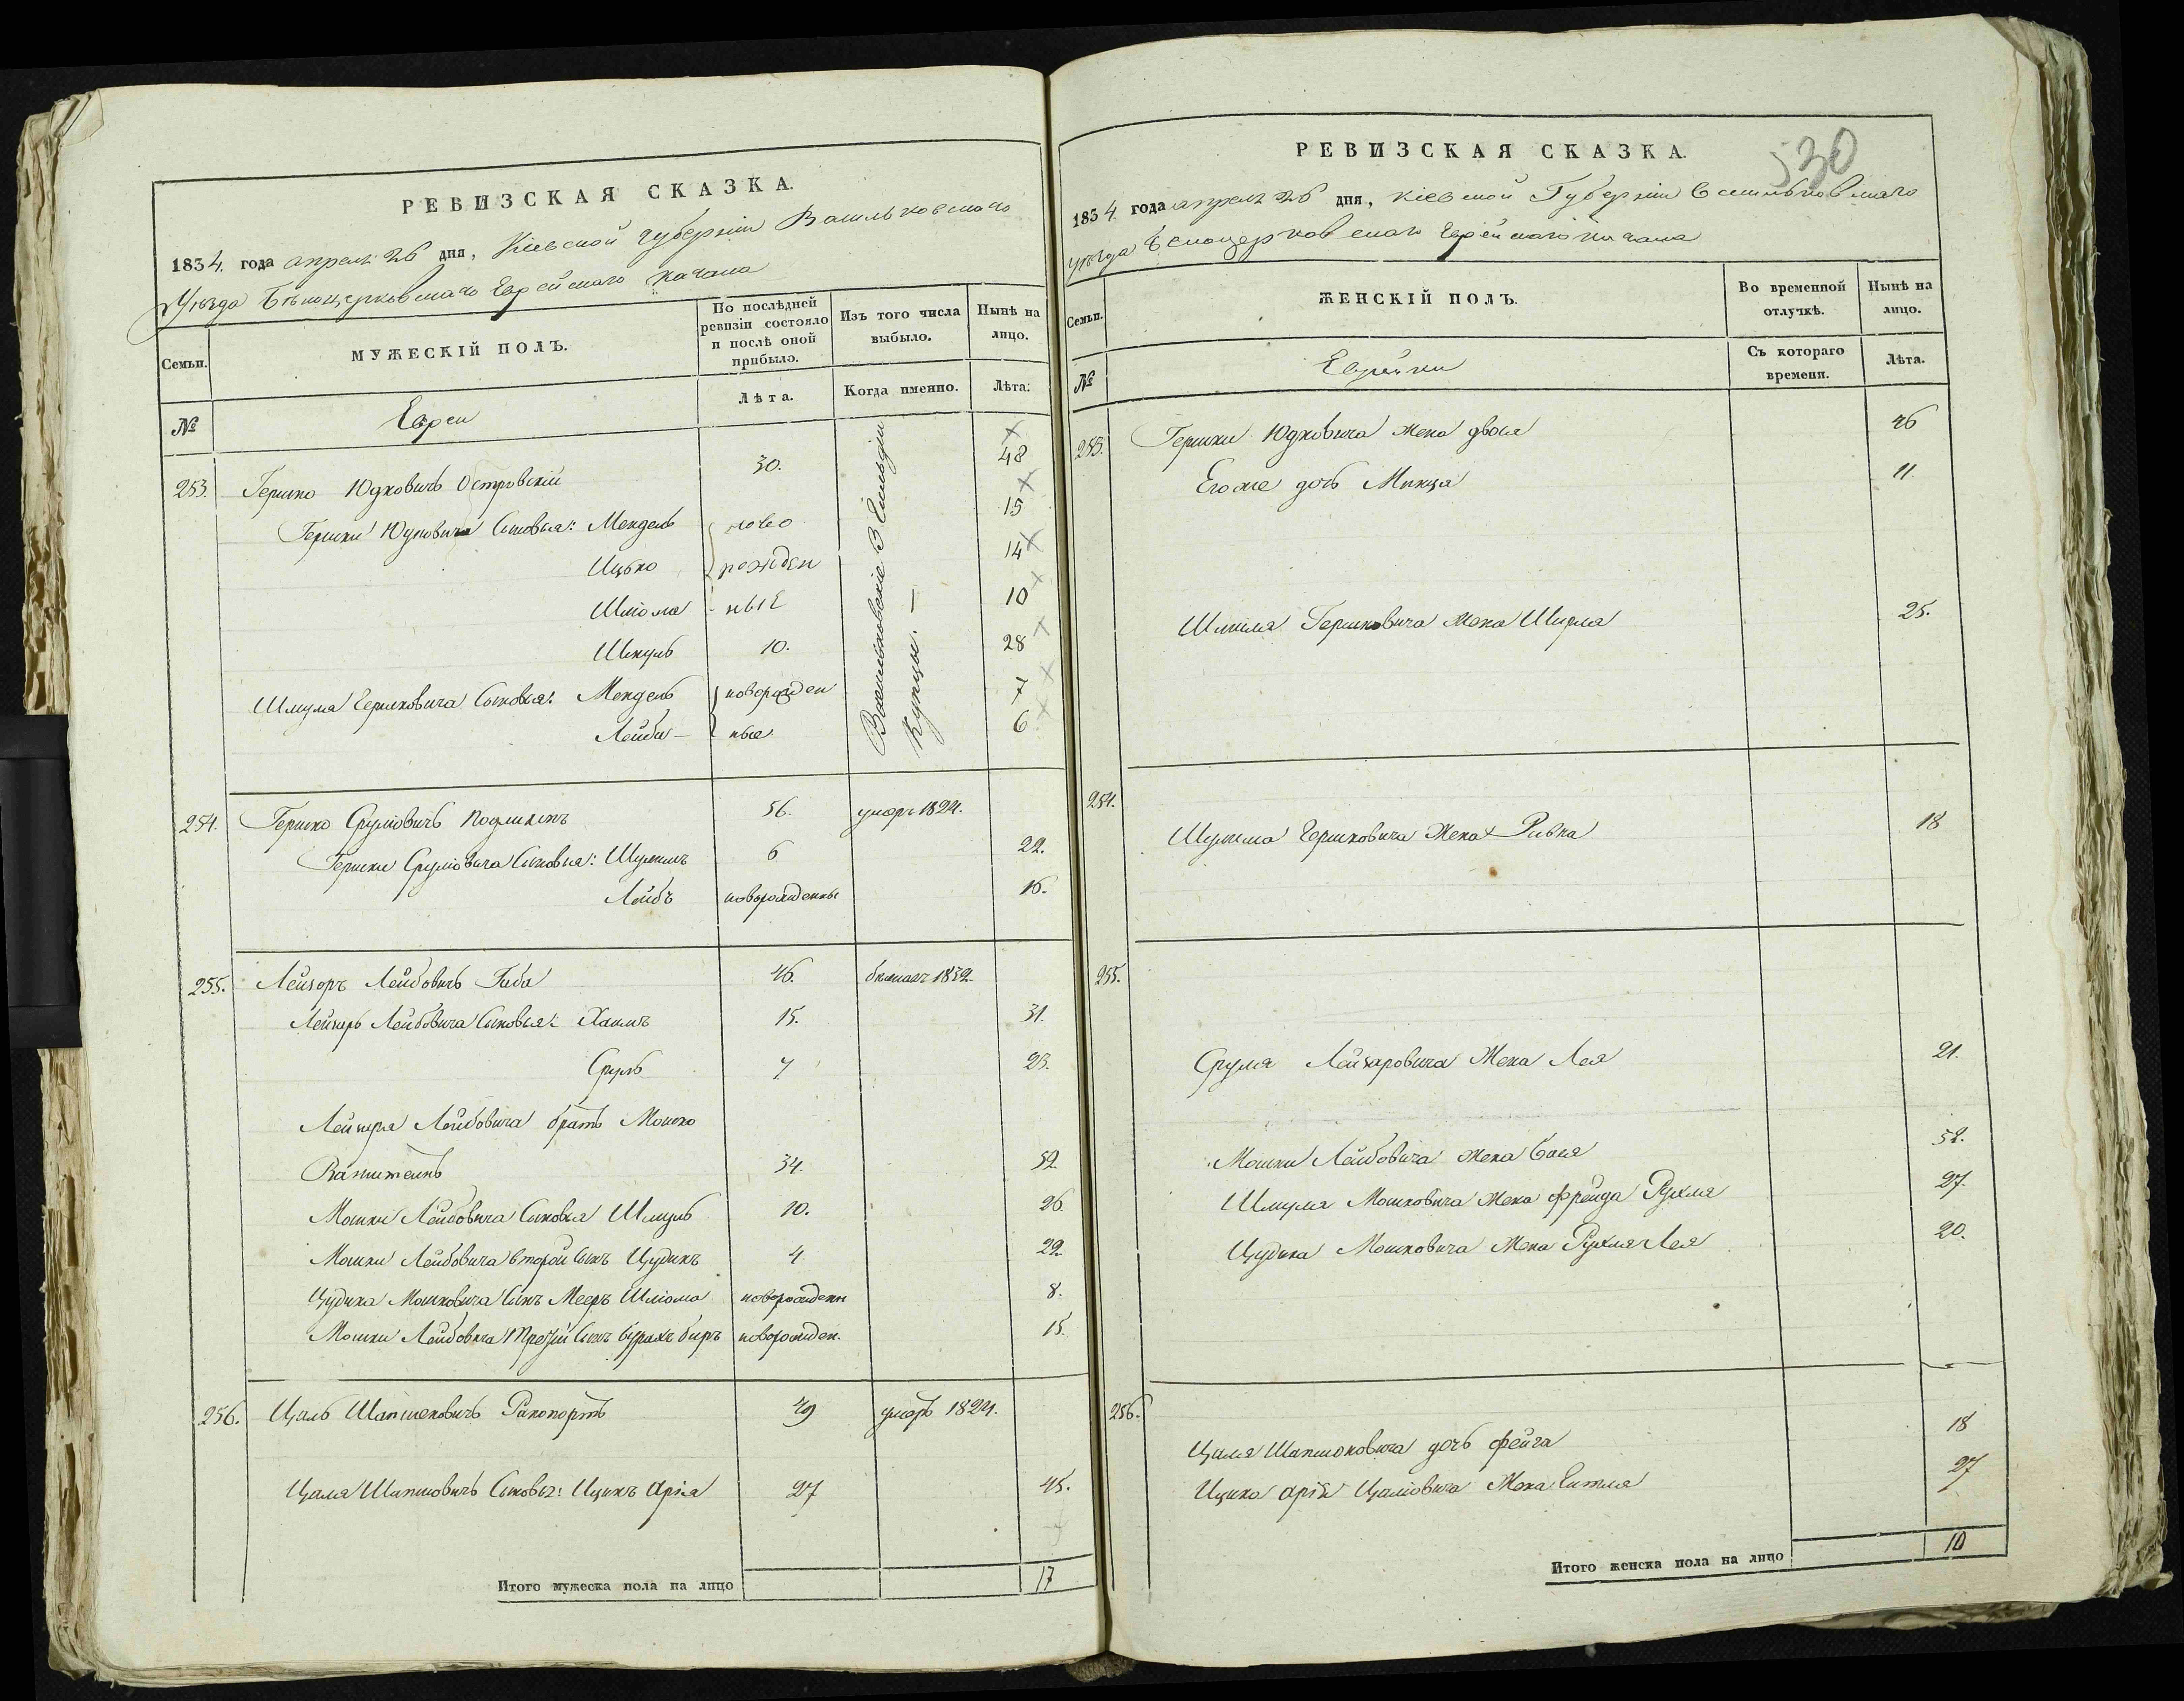 РЕВИЗСКАЯ СКАЗКА.
1834. года апреля 26 дня, Кіевской губерніи Васильковскаго
Уѣзда Бѣлоцерковскаго Еврейскаго Кагала
Семьи.
МУЖЕСКІЙ ПОЛЪ.
По послѣдней ревизіи состояло и послѣ оной прибыло.
Изъ того числа выбыло.
Нынѣ на лицо.
№
Евреи
Лѣта.
Когда именно.
Лѣта.
253. Гершко Юдковичъ Островскій 30. 48
Гершки Юдковича Сыновья: Мендель ново 15
Ицько рожден 14
Шлiома ныE 10
Шмуль 10. 28
Шмуля Гершковича Сыновья: Мендель новорожден 7
Лейба ные 6
Васильковскіе 3 Гильдіи
Купцы.
254. Гершко Сруліовичъ 56. умеръ 1824.
Гершки Сруліовича Сыновья: Шулимъ 6 22.
Лейбъ новорожденны 16.
255. Лейзоръ Лейбовичъ Габа 46. 1832.
Лейзоръ Лейбовича Сыновья: Хаимъ 15. 31.
Сруль 7 23.
Лейзера Лейбовича братъ Мошко
34. 52.
Мошки Лейбовича Сыновья Шмуль 10. 26.
Мошки Лейбовича второй Сынъ Цудикъ 4 22.
Цудика Мошковича Сынъ Мееръ Шлiома новорожденн 8.
Мошки Лейбовича Третій Сынъ новорожден. 15.
256. Цаль Шапшековичъ Рапопортъ 49 умеръ 1824.
Цаля Шапшовичъ Сыновья: Ицикъ Арiя 27 45.
Итого мужеска пола на лицо 17
530
РЕВИЗСКАЯ СКАЗКА.
1834. года апреля 26 дня, Кіевской Губерніи Васильковскаго
уѣзда Белоцерковскаго Еврейскаго кагала
Семьи.
ЖЕНСКІЙ ПОЛЪ.
Во временной отлучкѣ.
Нынѣ на лицо.
№
Еврейки
Съ котораго времени.
Лѣта.
253. Гершки Юдковича жена двося 46
Его же дочь Минца 11.
Шмуля Гершковича жена Ширля 25.
254.
Шулима Гершковича Жена Ривка 18
255.
Сруля Лейзаровича Жена Лея 21.
Мошки Лейбовича жена Бася 52.
Шмуля Мошковича жена Фрейда Рухля 27.
Цудика Мошковича Жена Рухля Лея 20.
256.
Цаля Шапшоковича дочь Фейга 18
Ицико Арія Цаліовича Жена Ештля 27
Итого женска пола на лицо 10